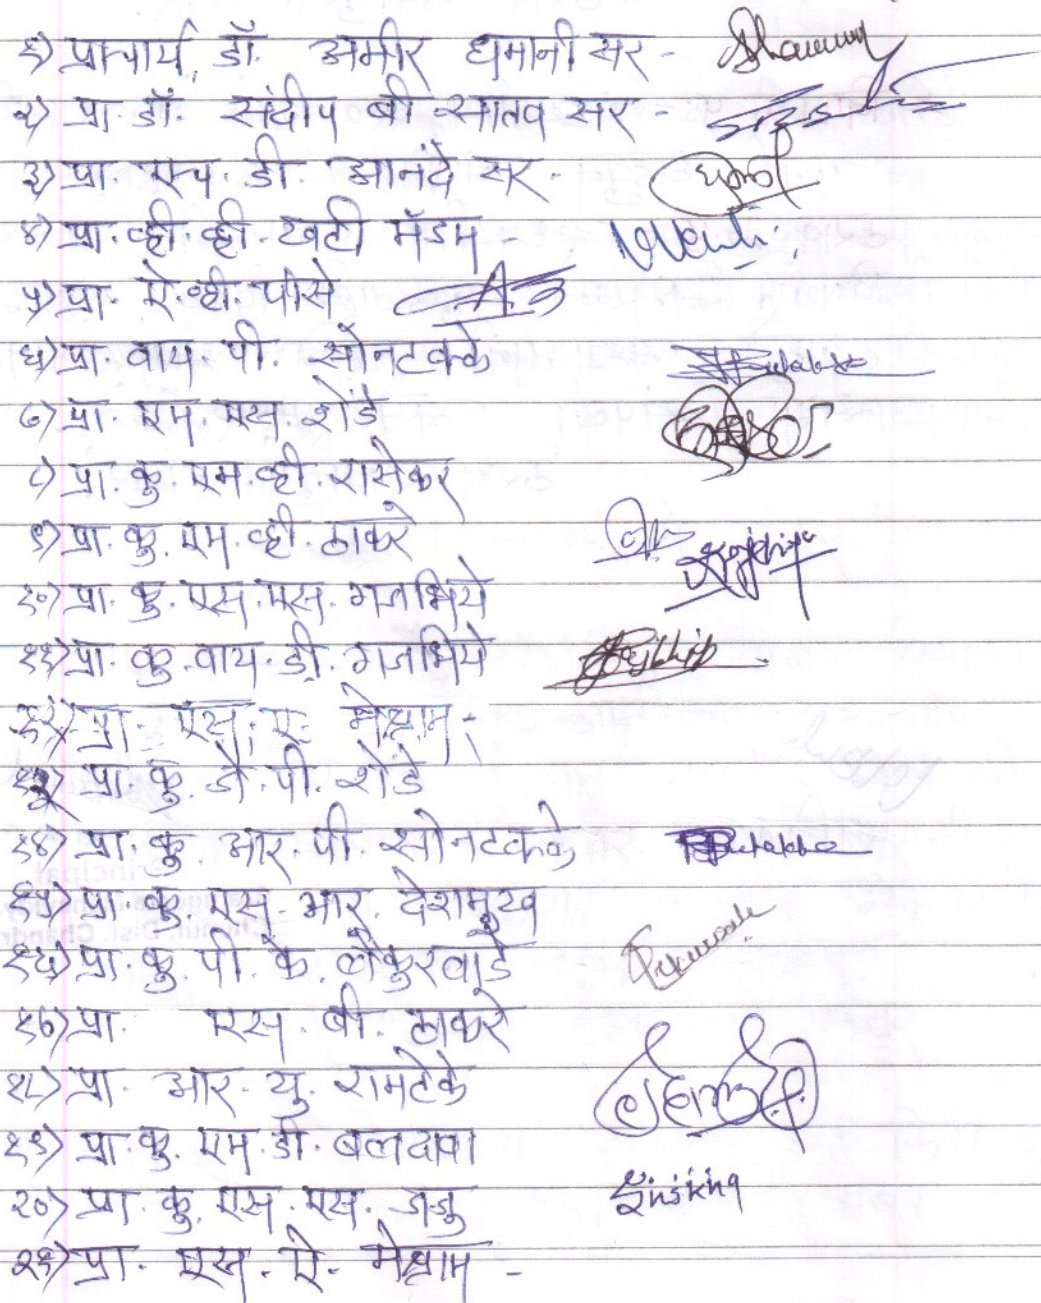 १) प्राचार्य, डॉ. अमीर धमानी सर -
२) प्रा. डॉ. संदीप बी सातव सर -
३) प्रा. एच. डी. आनंदे सर -
४) प्रा. व्ही. व्ही. खटी मॅडम -
५) प्रा. ऐ. व्ही. पीसे
६) प्रा वाय पी. सोनटक्के
७) प्रा एम. एस. शेंडे
८) प्रा. कु. एम. व्ही. रासेकर
९) प्रा. कु. एम. व्ही. ठाकरे
१०) प्रा. कु. एस. एस. गजभिये
११) प्रा. कु. वाय. डी. गजभिये
१२) प्रा. एस. ए. मेश्राम -
१३) प्रा. कु. जे. पी. शेंडे
१४) प्रा. कु. आर. पी. सोनटक्के
१५) प्रा. कु. एस. आर. देशमुख
१६) प्रा. कु. पी. के. लोकुरवाडे
१७) प्रा. एस. बी. ठाकरे
१८) प्रा. आर. यु. रामटेके
१९) प्रा. कु. एम. डी. बलदवा
२०) प्रा. कु. एस. एस. जजु
२१) प्रा. एस. ऐ. मेश्राम -